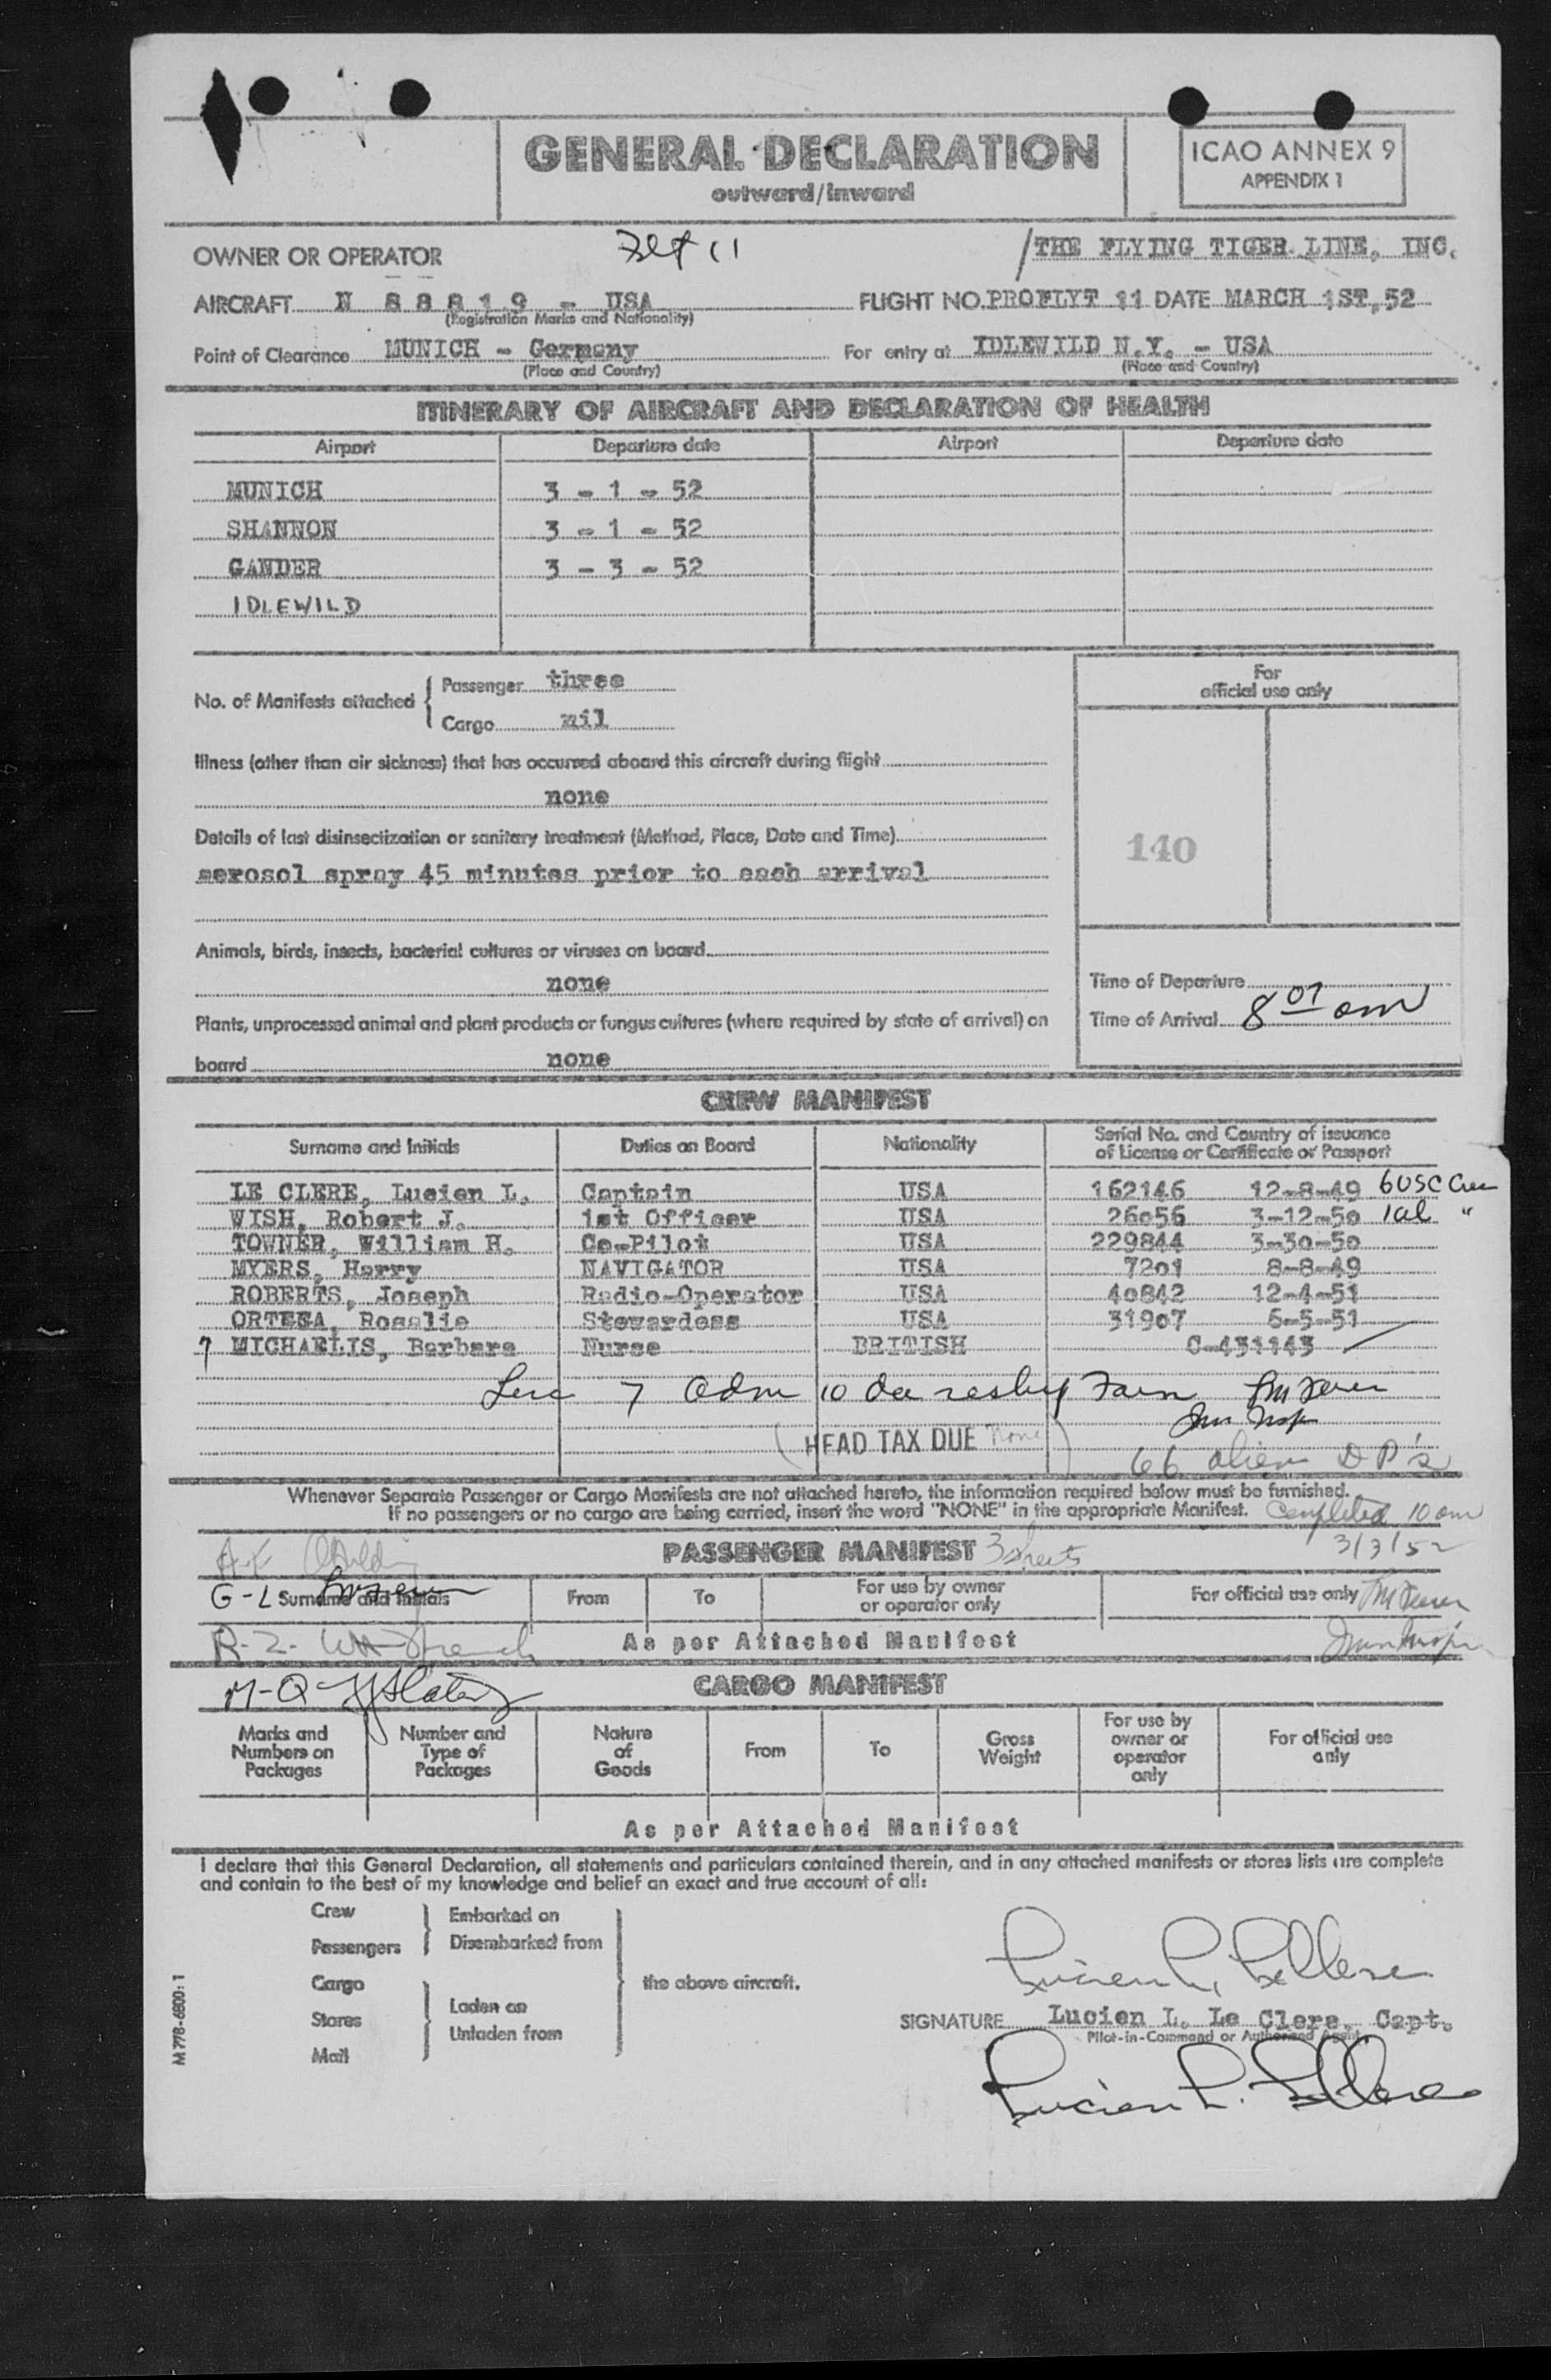 GENERAL DECLARATION
outward/inward
ICAO ANNEX 9
APPENDIX 1
OWNER OR OPERATOR THE FLYING TIGER LINE, INC.
AIRCRAFT N 88819 - USA FLIGHT NO. PROFLYT 11 DATE MARCH 1ST, 52
(Registration Marks and Nationality)
Point of Clearance MUNICH - Germany For entry at IDLEWILD N.Y. - USA
(Place and Country) (Place and Country)
ITINERARY OF AIRCRAFT AND DECLARATION OF HEALTH
Airport Departure date Airport Departure date
MUNICH 3 - 1 - 52
SHANNON 3 - 1 - 52
GANDER 3 - 3 - 52
IDLEWILD
For
official use only
No. of Manifests attached
Passenger three
Cargo nil
Illness (other than air sickness) that has occurred aboard this aircraft during flight
none
Details of last disinsectization or sanitary treatment (Method, Place, Date and Time)
140
aerosol spray 45 minutes prior to each arrival
Animals, birds, insects, bacterial cultures or viruses on board
none
Time of Departure
Time of Arrival 8 07 am
Plants, unprocessed animal and plant products or fungus cultures (where required by state of arrival) on
board none
CREW MANIFEST
Surname and Initials Duties on Board Nationality Serial No. and Country of issuance
of License or Certificate or Passport
LE CLERE, Lucien L. Captain USA 162146 12-8-49 6 USC Crew
WISH, Robert J. 1st Officer USA 26056 3-12-50 1 al "
TOWNER, William H. Co-Pilot USA 229844 3-30-50
MYERS, Harry NAVIGATOR USA 7201 8-8-49
ROBERTS, Joseph Radio-Operator USA 40842 12-4-51
ORTEGA, Rosalie Stewardess USA 31907 6-5-51
7 MICHAELIS, Barbara Nurse BRITISH C-431143
7 Adm 10
HEAD TAX DUE None
66 alien DP's
Whenever Separate Passenger or Cargo Manifests are not attached hereto, the information required below must be furnished.
If no passengers or no cargo are being carried, insert the word "NONE" in the appropriate Manifest. Completed 10 am
3/3/52
A-F
PASSENGER MANIFEST 3 sheets
G-L Surname and Initials From To For use by owner
or operator only For official use only
R-Z
As per Attached Manifest
M-Q
CARGO MANIFEST
Marks and
Numbers on
Packages
Number and
Type of
Packages
Nature
of
Goods
From
To
Gross
Weight
For use by
owner or
operator
only
For official use
only
As per Attached Manifest
I declare that this General Declaration, all statements and particulars contained therein, and in any attached manifests or stores lists are complete
and contain to the best of my knowledge and belief an exact and true account of all:
Crew
Passengers
Embarked on
Disembarked from
Cargo
Stores
Mail
Laden on
Unladen from
the above aircraft.
Lucien L. Le Clere
SIGNATURE Lucien L. Le Clere, Capt.
Pilot-in-Command or Authorized Agent
Lucien L. Le Clere
M 778-6800: 1